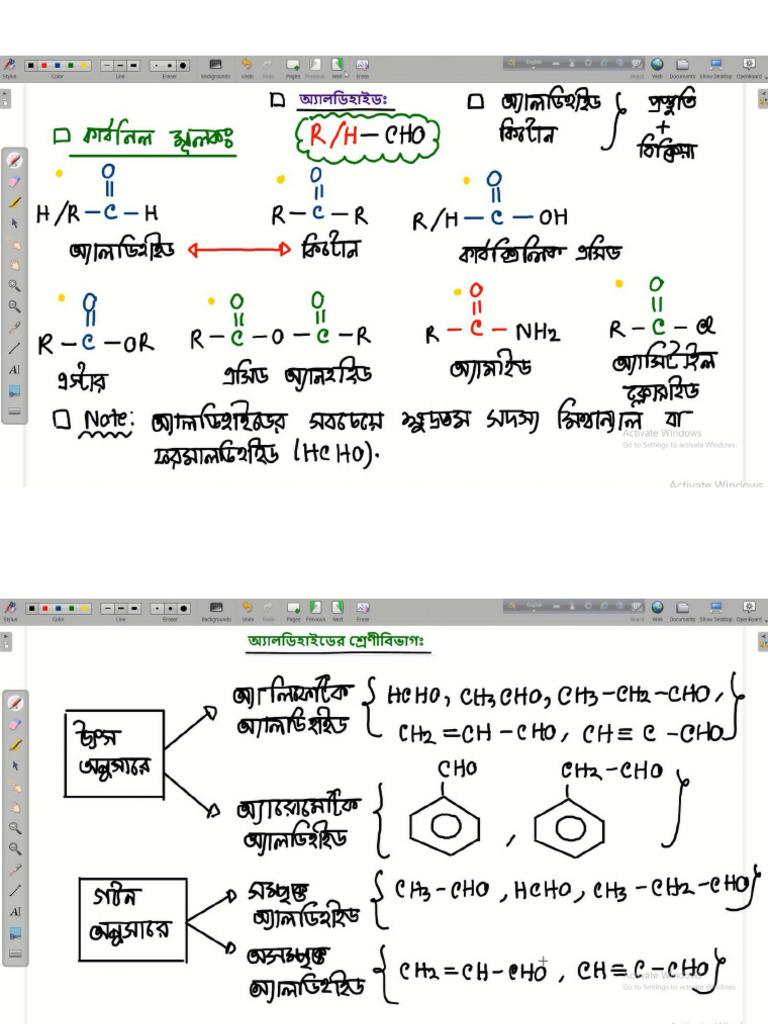 Stylus Color Line Eraser Backgrounds Undo Redo Pages Previous Next Erase Board Web Documents Show Desktop OpenBoard
□ অ্যালডিহাইডঃ
□ অ্যালডিহাইড
কিটোন } প্রস্তুতি + বিক্রিয়া
□ কার্বনিল মূলকঃ
R/H — CHO
O O O
H/R — C — H R — C — R R/H — C — OH
অ্যালডিহাইড ⟷ কিটোন কার্বক্সিলিক এসিড
O O O O O
R — C — OR R — C — O — C — R R — C — NH2 R — C — Cl
এস্টার এসিড অ্যানহাইড্রাইড অ্যামাইড অ্যাসিটাইল
ক্লোরাইড
□ Note: অ্যালডিহাইডের সবচেয়ে ক্ষুদ্রতম সদস্য মিথান্যাল বা
ফরমালডিহাইড (HCHO).
Activate Windows
Go to Settings to activate Windows.
Activate Windows
Stylus Color Line Eraser Backgrounds Undo Redo Pages Previous Next Erase Board Web Documents Show Desktop OpenBoard
অ্যালডিহাইডের শ্রেণীবিভাগঃ
উৎস
অনুসারে
অ্যালিফেটিক
অ্যালডিহাইড
{ HCHO, CH3CHO, CH3 – CH2 – CHO,
CH2 = CH – CHO, CH ≡ C – CHO }
CHO CH2 – CHO
অ্যারোমেটিক
অ্যালডিহাইড
গঠন
অনুসারে
সম্পৃক্ত
অ্যালডিহাইড
{ CH3 – CHO, HCHO, CH3 – CH2 – CHO }
অসম্পৃক্ত
অ্যালডিহাইড
{ CH2 = CH – CHO, CH ≡ C – CHO }
Activate Windows
Go to Settings to activate Windows.